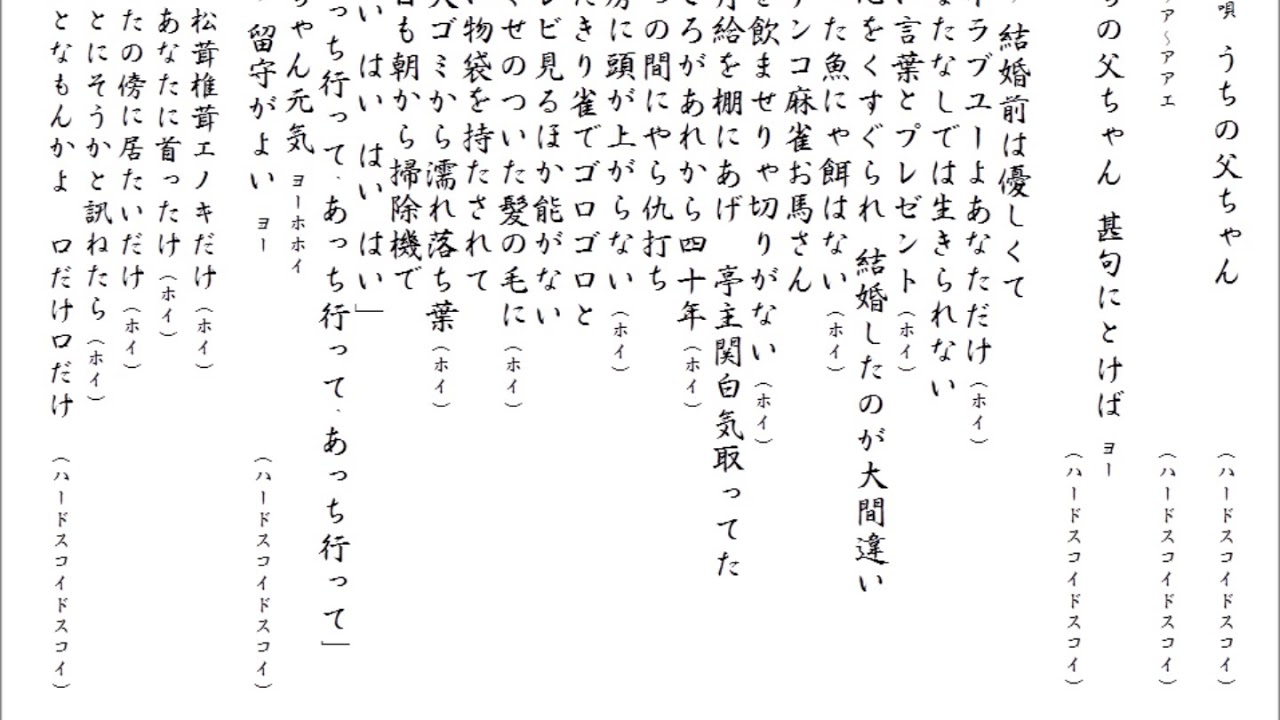 唄 うちの父ちゃん (ハードスコイドスコイ)
アア〜アアエ (ハードスコイドスコイ)
の父ちゃん 甚句にとけば ヨー
(ハードスコイドスコイ)
結婚前は優しくて
ラブユーよあなただけ(ホイ)
たなしでは生きられない
言葉とプレゼント(ホイ)
をくすぐられ 結婚したのが大間違い
た魚にゃ餌はない(ホイ)
ンコ麻雀お馬さん
飲ませりゃ切りがない(ホイ)
給を棚にあげ 亭主関白気取ってた
ろがあれから四十年(ホイ)
の間にやら仇打ち
房に頭が上がらない(ホイ)
きり雀でゴロゴロと
レビ見るほか能がない
せのついた髪の毛に(ホイ)
物袋を持たされて
ゴミから濡れ落ち葉(ホイ)
も朝から掃除機で
い はい はい はい」
っち行って、あっち行って、あっち行って」
ちゃん元気 ヨーホホイ
留守がよい ヨー (ハードスコイドスコイ)
松茸椎茸エノキだけ(ホイ)
あなたに首ったけ(ホイ)
たの傍に居たいだけ(ホイ)
とにそうかと訊ねたら(ホイ)
となもんかよ 口だけ口だけ (ハードスコイドスコイ)